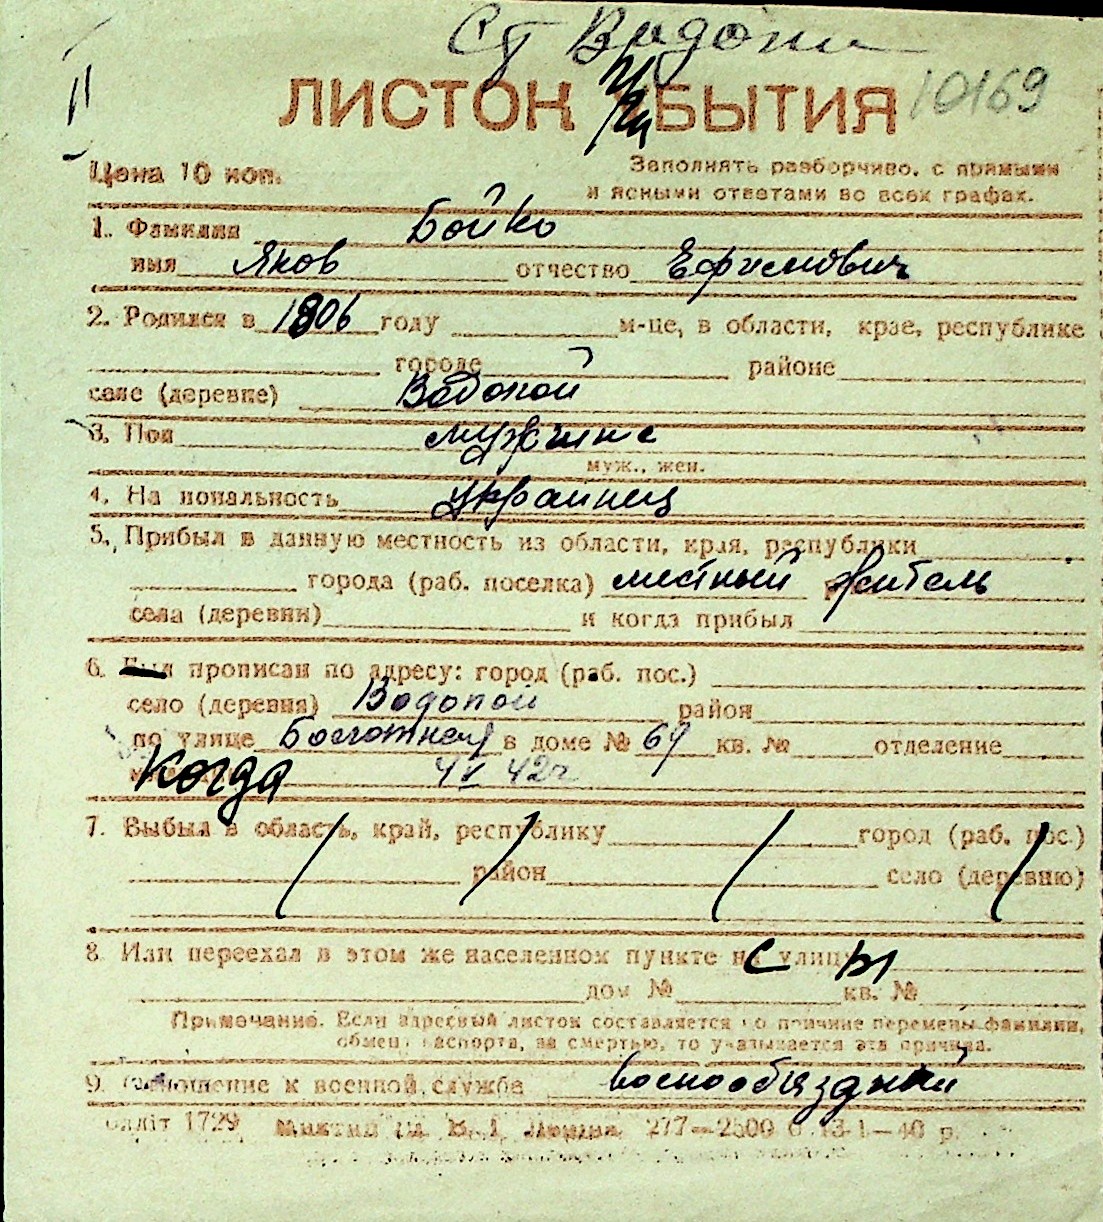 Ст Водопой
II
ЛИСТОК ПРИБЫТИЯ 10169
Цена 10 коп.
Заполнять разборчиво, с прямыми
и ясными ответами во всех графах.
1. Фамилия Бойко
имя Яков отчество Ефимович
2. Родился в 1906 году м-це, в области, крае, республике
городе районе
селе (деревне) Водопой
3. Пол мужчина
муж., жен.
4. Национальность украинец
5. Прибыл в данную местность из области, края, республики
города (раб. поселка) местный житель
села (деревни) и когда прибыл
6. прописан по адресу: город (раб. пос.)
село (деревня) Водопой район
по улице в доме № 69 кв. № отделение
Когда 42г
7. Выбыл в область, край, республику город (раб. пос.)
район село (деревню)
8. Или переехал в этом же населенном пункте на улицу
дом № кв. №
Примечание. Если адресный листок составляется по причине перемены фамилии,
обмена паспорта, за смертью, то указывается эта причина.
9. Отношение к военной службе военнообязаний
1729 277—2500 6 13-1—40 р.